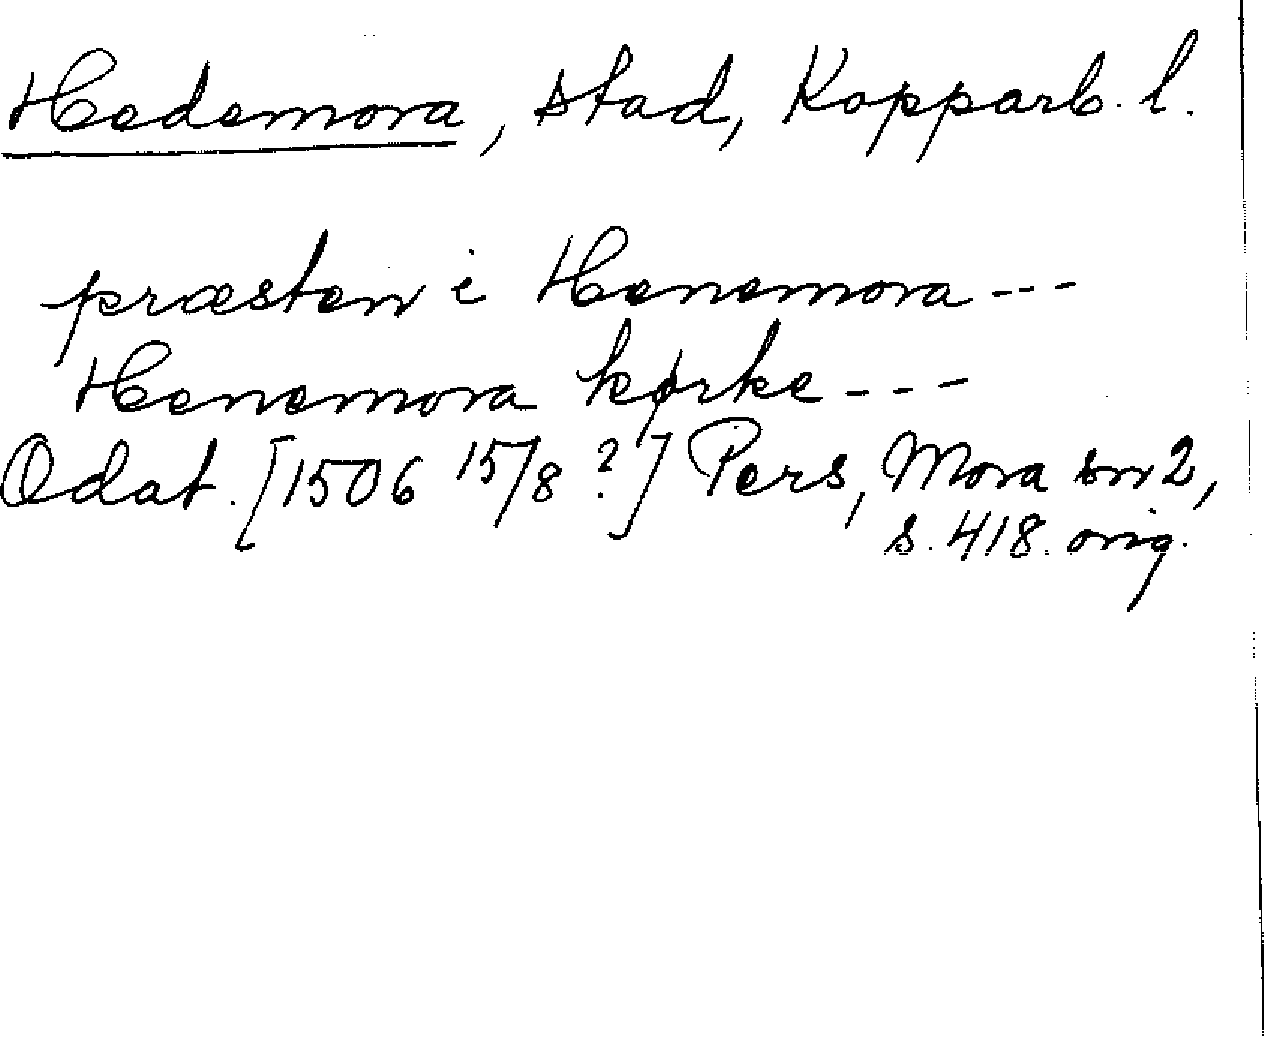 Hedemora, stad, Kopparb. l.
præsten i Henemora ---
Henemora kørke ---
Odat. [1506 15/8 ?] Pers, Mora sn 2,
s. 418. orig.